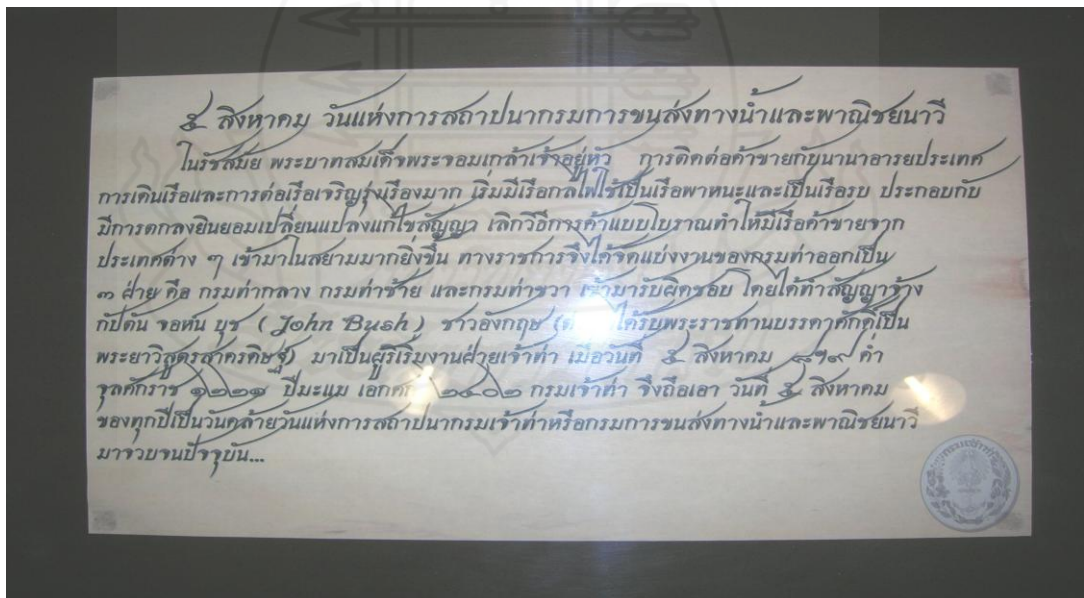 ๕ สิงหาคม วันแห่งการสถาปนากรมการขนส่งทางน้ำและพาณิชยนาวี
ในรัชสมัย พระบาทสมเด็จพระจอมเกล้าเจ้าอยู่หัว การติดต่อค้าขายกับนานาอารยประเทศ
การเดินเรือและการต่อเรือเจริญรุ่งเรืองมาก เริ่มมีเรือกลไฟใช้เป็นเรือพาหนะและเป็นเรือรบ ประกอบกับ
มีการตกลงยินยอมเปลี่ยนแปลงแก้ไขสัญญา เลิกวิธีการค้าแบบโบราณทำให้มีเรือค้าขายจาก
ประเทศต่าง ๆ เข้ามาในสยามมากยิ่งขึ้น ทางราชการจึงได้จัดแบ่งงานของกรมท่าออกเป็น
๓ ฝ่าย คือ กรมท่ากลาง กรมท่าซ้าย และกรมท่าขวา เข้ามารับผิดชอบ โดยได้ทำสัญญาจ้าง
กัปตัน จอห์น บุช ( John Bush ) ชาวอังกฤษ ได้รับพระราชทานบรรดาศักดิ์เป็น
พระยาวิสูตรสาครดิษฐ์) มาเป็นผู้ริเริ่มงานฝ่ายเจ้าท่า เมื่อวันที่ ๕ สิงหาคม ค่ำ
จุลศักราช ๑๒๒๑ ปีมะแม ๒๔๐๒ กรมเจ้าท่า จึงถือเอา วันที่ ๕ สิงหาคม
ของทุกปีเป็นวันคล้ายวันแห่งการสถาปนากรมเจ้าท่าหรือกรมการขนส่งทางน้ำและพาณิชยนาวี
มาจวบจนปัจจุบัน...